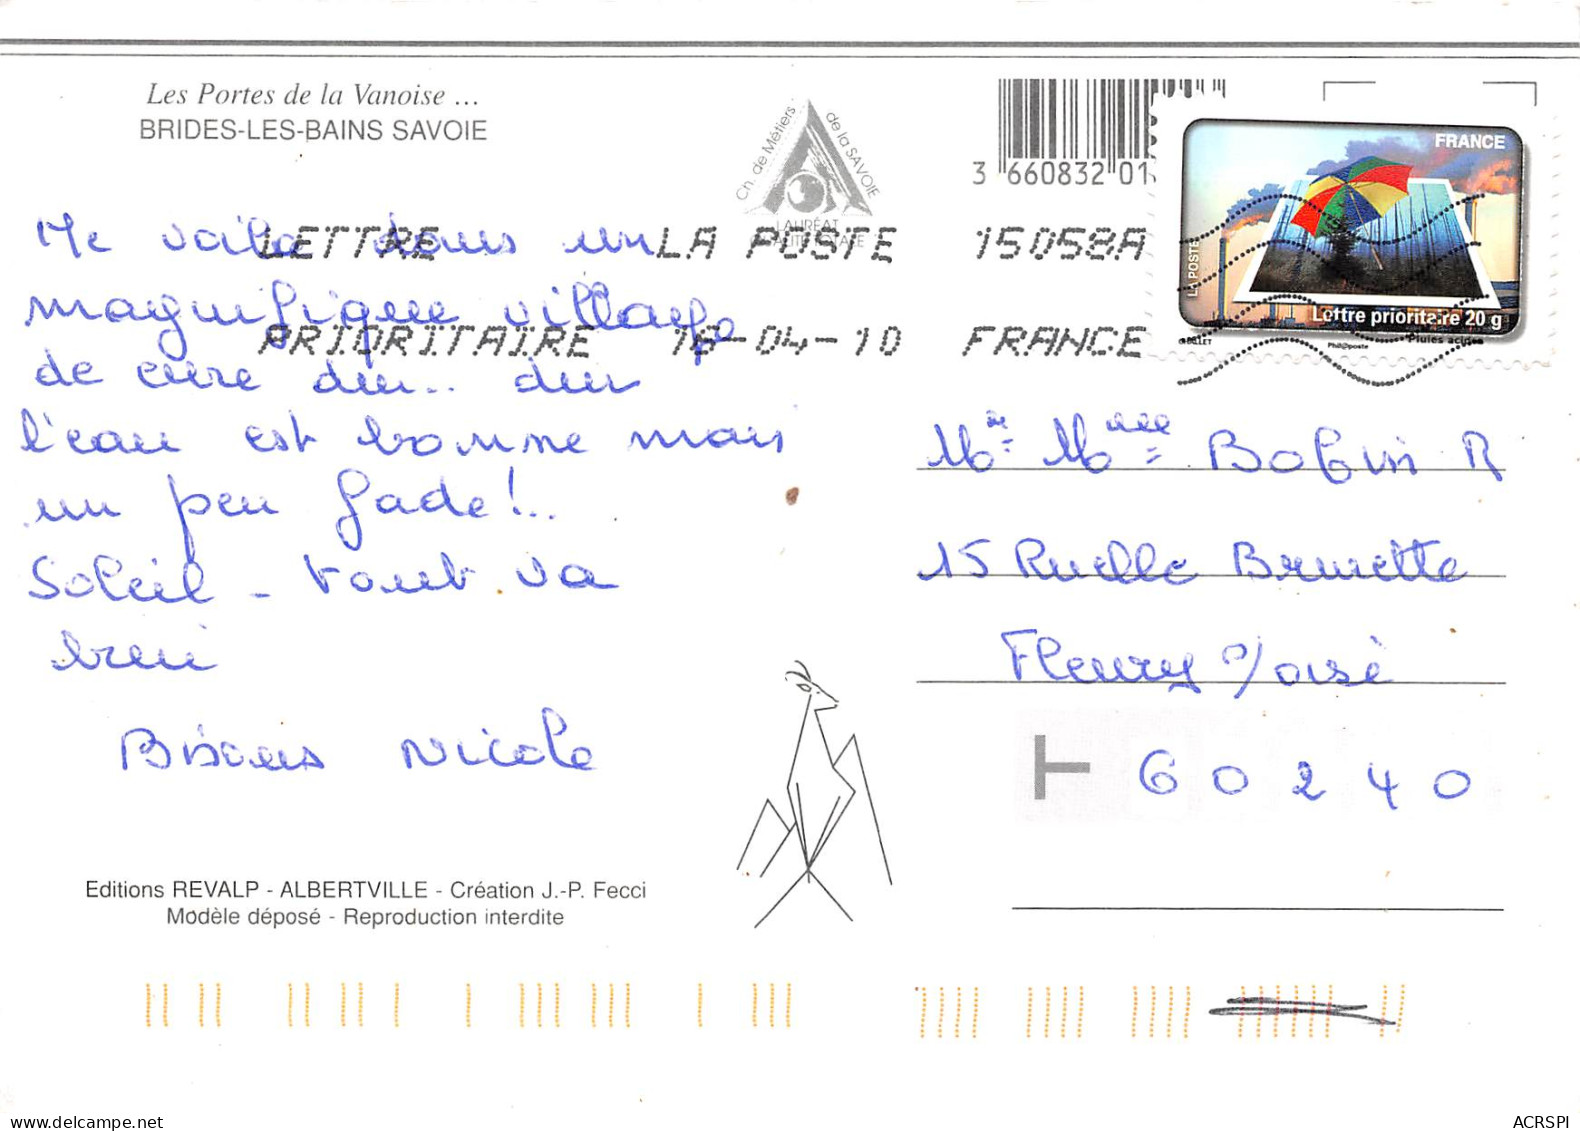 Les Portes de la Vanoise ...
BRIDES-LES-BAINS SAVOIE
Ch. de Métiers de la SAVOIE
LAURÉAT
3 660832 01
FRANCE
LA POSTE
Lettre prioritaire 20 g
Phil@poste
Pluies acides
LETTRE LA POSTE 15058A
PRIORITAIRE 16-04-10 FRANCE
Me voila dans un
magnifique village
de cure dur.. dur
l'eau est bonne mais
un peu fade!..
Soleil - tout va
bien
Bisous Nicole
Mr = Mme = Bobin R
15 Ruelle Brunette
Fleury s/oise
60240
Editions REVALP - ALBERTVILLE - Création J.-P. Fecci
Modèle déposé - Reproduction interdite
ACRSPI